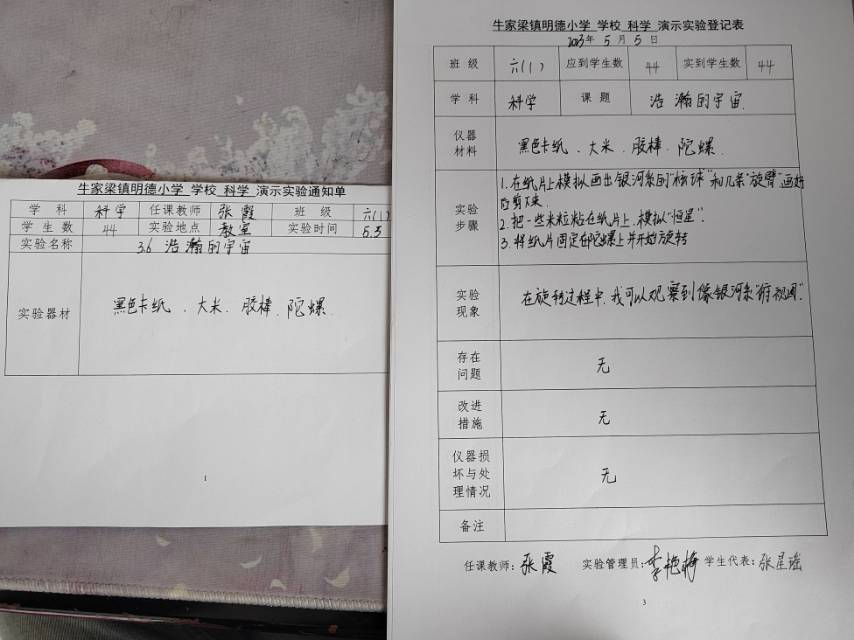 牛家梁镇明德小学 学校 科学 演示实验通知单
学 科 科学 任课教师 张霞 班 级 六(1)
学 生 数 44 实验地点 教室 实验时间 5.5
实验名称 3.6 浩瀚的宇宙
实验器材 黑色卡纸 、大米、胶棒、陀螺
1
牛家梁镇明德小学 学校 科学 演示实验登记表
2023年 5 月 5 日
班 级 六(1) 应到学生数 44 实到学生数 44
学 科 科学 课 题 浩瀚的宇宙
仪器
材料
黑色卡纸、大米、胶棒、陀螺
实验
步骤
1.在纸片上模拟画出银河系的"核球"和几条"旋臂"画好
的剪下来.
2.把一些米粒粘在纸片上,模拟"恒星".
3.将纸片固定在陀螺上并开始旋转
实验
现象
在旋转过程中,我可以观察到像银河系"俯视图".
存在
问题
无
改进
措施
无
仪器损
坏与处
理情况
无
备注
任课教师:张霞 实验管理员:李艳梅 学生代表:张星谣
3